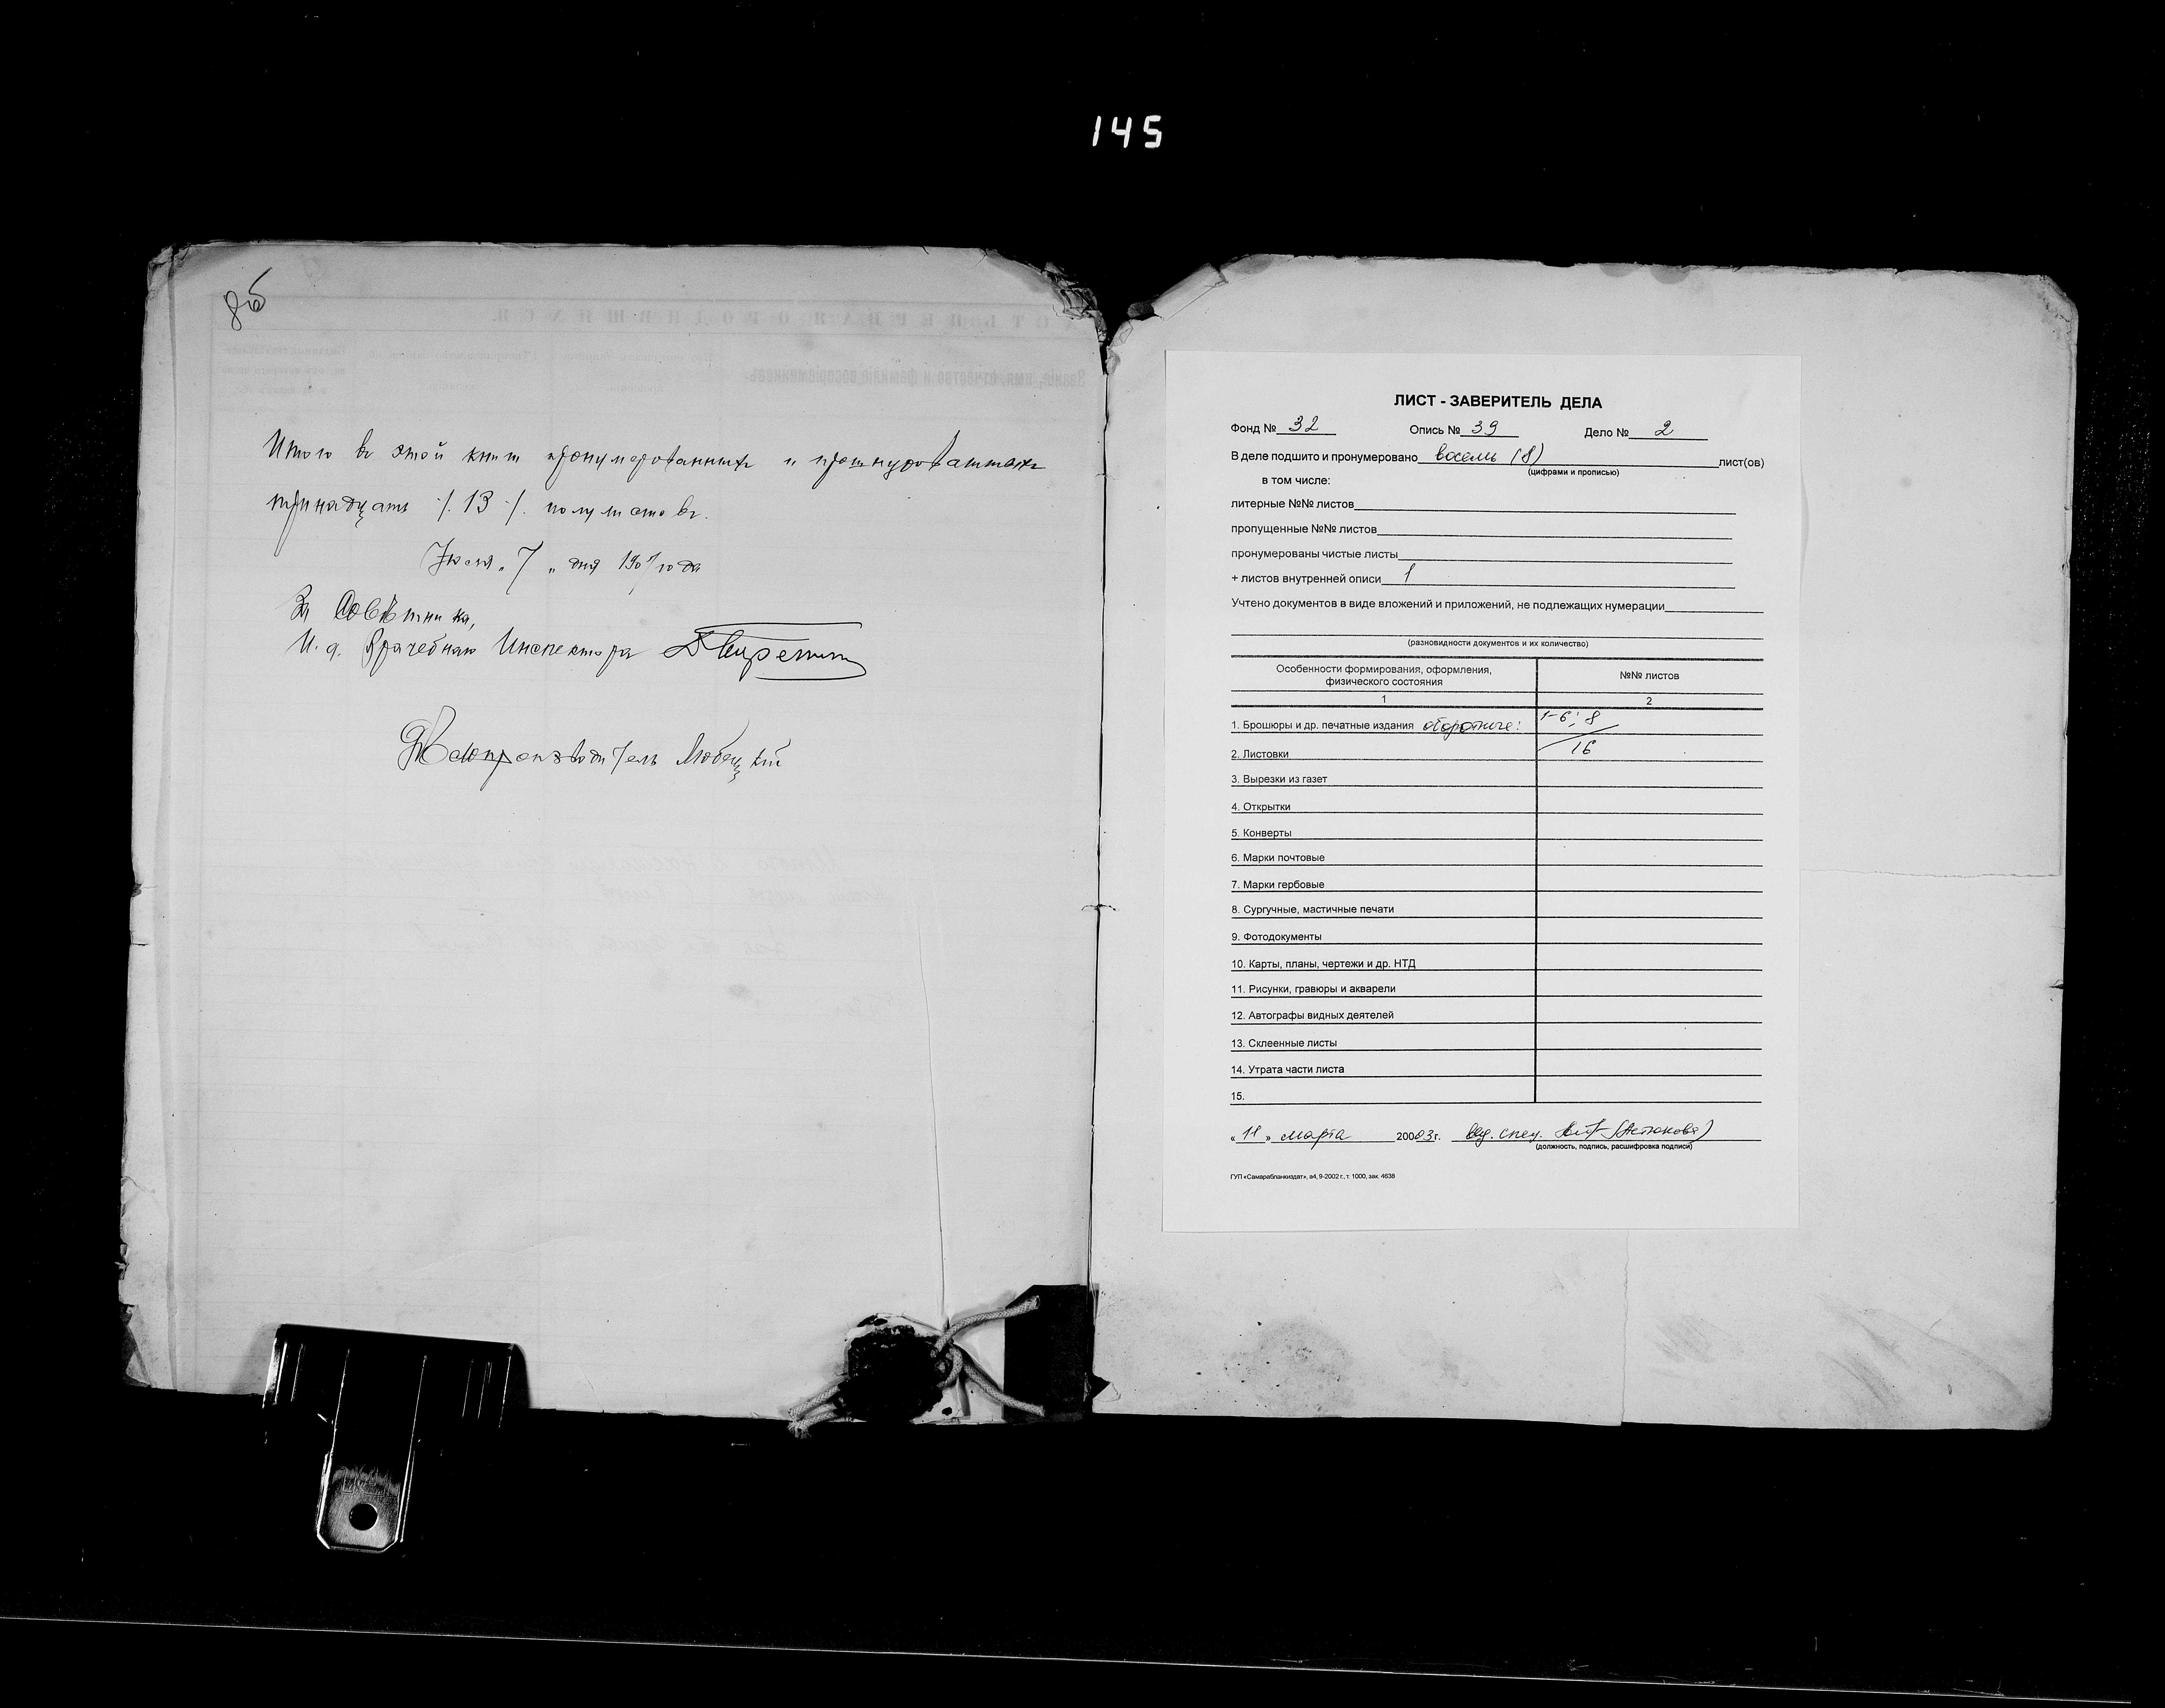 145
8об
Итого въ этой книгѣ пронумерованныхъ и прошнурованныхъ
тринадцать /. 13 /. полулистовъ.
Іюля „ 7 „ дня 190 года
За Совѣтника,
И. д. Врачебнаго Инспектора
Дѣлопроизводитель Любецкій
ЧАСТЬ ПЕРВАЯ О РОДИВШИХСЯ.
Званіе, имя, отчество и фамилія воспріемниковъ.
ЛИСТ - ЗАВЕРИТЕЛЬ ДЕЛА
Фонд № 32 Опись № 39 Дело № 2
В деле подшито и пронумеровано восемь (8) лист(ов)
(цифрами и прописью)
в том числе:
литерные №№ листов
пропущенные №№ листов
пронумерованы чистые листы
+ листов внутренней описи 1
Учтено документов в виде вложений и приложений, не подлежащих нумерации
(разновидности документов и их количество)
Особенности формирования, оформления, физического состояния №№ листов
1 2
1. Брошюры и др. печатные издания оборотные: 1-6; 8
2. Листовки 16
3. Вырезки из газет
4. Открытки
5. Конверты
6. Марки почтовые
7. Марки гербовые
8. Сургучные, мастичные печати
9. Фотодокументы
10. Карты, планы, чертежи и др. НТД
11. Рисунки, гравюры и акварели
12. Автографы видных деятелей
13. Склеенные листы
14. Утрата части листа
15.
« 11 » марта 2003г. вед. спец. (Астахова)
(должность, подпись, расшифровка подписи)
ГУП «Самарабланкиздат», а4, 9-2002 г., т. 1000, зак. 4638